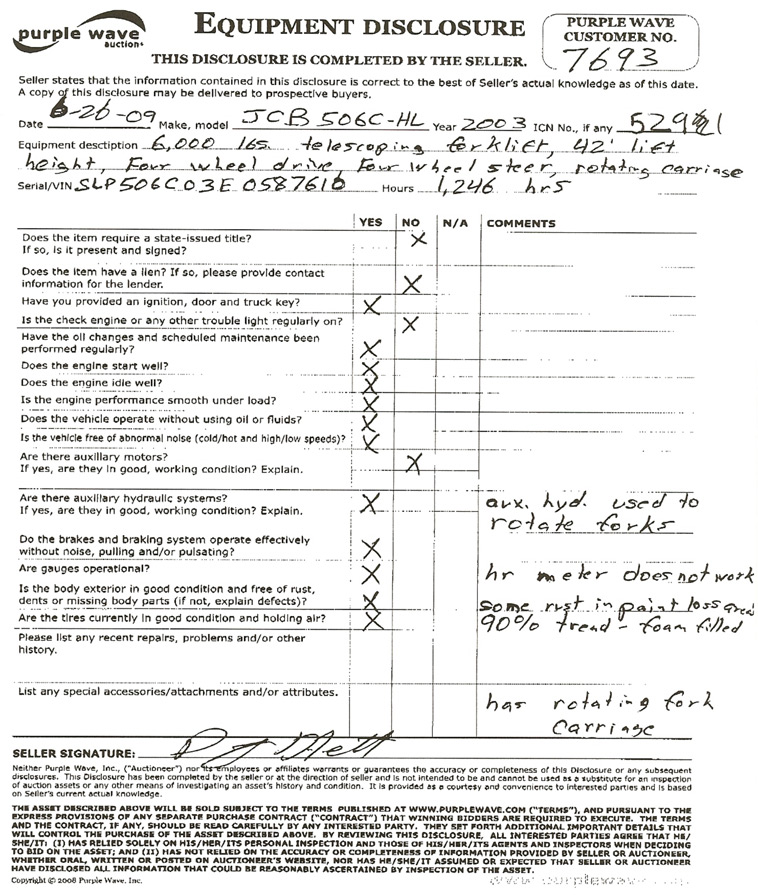 purple wave
auction
EQUIPMENT DISCLOSURE
PURPLE WAVE
CUSTOMER NO.
7693
THIS DISCLOSURE IS COMPLETED BY THE SELLER.
Seller states that the information contained in this disclosure is correct to the best of Seller's actual knowledge as of this date.
A copy of this disclosure may be delivered to prospective buyers.
Date 6-26-09 Make, model JCB 506C-HL Year 2003 ICN No., if any
Equipment desctiption 6,000 lbs. telescoping forklift, 42' lift
height, Four wheel drive, Four wheel steer, rotating carriage
Serial/VIN SLP506C03E0587610 Hours 1,246 hrs
YES NO N/A COMMENTS
Does the item require a state-issued title? X
If so, is it present and signed?
Does the item have a lien? If so, please provide contact
information for the lender. X
Have you provided an ignition, door and truck key? X
Is the check engine or any other trouble light regularly on? X
Have the oil changes and scheduled maintenance been
performed regularly? X
Does the engine start well? X
Does the engine idle well? X
Is the engine performance smooth under load? X
Does the vehicle operate without using oil or fluids? X
Is the vehicle free of abnormal noise (cold/hot and high/low speeds)? X
Are there auxiliary motors?
If yes, are they in good, working condition? Explain. X
Are there auxiliary hydraulic systems? X aux. hyd. used to
If yes, are they in good, working condition? Explain. rotate forks
Do the brakes and braking system operate effectively
without noise, pulling and/or pulsating? X
Are gauges operational? X hr meter does not work
Is the body exterior in good condition and free of rust,
dents or missing body parts (if not, explain defects)? X some rust in paint loss area
Are the tires currently in good condition and holding air? X 90% tread - foam filled
Please list any recent repairs, problems and/or other
history.
List any special accessories/attachments and/or attributes. has rotating fork
carriage
SELLER SIGNATURE:
Neither Purple Wave, Inc., ("Auctioneer") nor its employees or affiliates warrants or guarantees the accuracy or completeness of this Disclosure or any subsequent
disclosures. This Disclosure has been completed by the seller or at the direction of seller and is not intended to be and cannot be used as a substitute for an inspection
of auction assets or any other means of investigating an asset's history and condition. It is provided as a courtesy and convenience to interested parties and is based
on Seller's current actual knowledge.
THE ASSET DESCRIBED ABOVE WILL BE SOLD SUBJECT TO THE TERMS PUBLISHED AT WWW.PURPLEWAVE.COM ("TERMS"), AND PURSUANT TO THE
EXPRESS PROVISIONS OF ANY SEPARATE PURCHASE CONTRACT ("CONTRACT") THAT WINNING BIDDERS ARE REQUIRED TO EXECUTE. THE TERMS
AND THE CONTRACT, IF ANY, SHOULD BE READ CAREFULLY BY ANY INTERESTED PARTY. THEY SET FORTH ADDITIONAL IMPORTANT DETAILS THAT
WILL CONTROL THE PURCHASE OF THE ASSET DESCRIBED ABOVE. BY REVIEWING THIS DISCLOSURE, ALL INTERESTED PARTIES AGREE THAT HE/
SHE/IT: (I) HAS RELIED SOLELY ON HIS/HER/ITS PERSONAL INSPECTION AND THOSE OF HIS/HER/ITS AGENTS AND INSPECTORS WHEN DECIDING
TO BID ON THE ASSET; AND (II) HAS NOT RELIED ON THE ACCURACY OR COMPLETENESS OF INFORMATION PROVIDED BY SELLER OR AUCTIONEER,
WHETHER ORAL, WRITTEN OR POSTED ON AUCTIONEER'S WEBSITE, NOR HAS HE/SHE/IT ASSUMED OR EXPECTED THAT SELLER OR AUCTIONEER
HAVE DISCLOSED ALL INFORMATION THAT COULD BE REASONABLY ASCERTAINED BY INSPECTION OF THE ASSET.
Copyright © 2008 Purple Wave, Inc.
www.purplewave.com